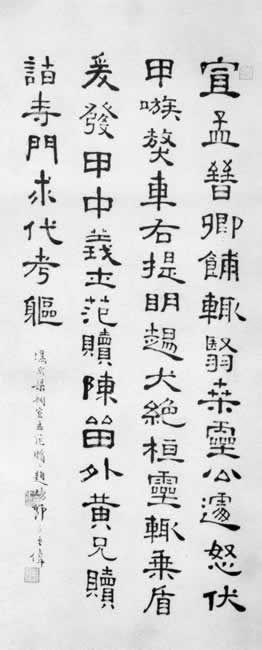 宣孟晉卿餔輒翳桑靈公遽怒伏
甲嗾獒車右提明趨犬絕桓靈輒乘盾
爰發甲中義士范贖陳留外黃兄贖
詣寺門求代考軀